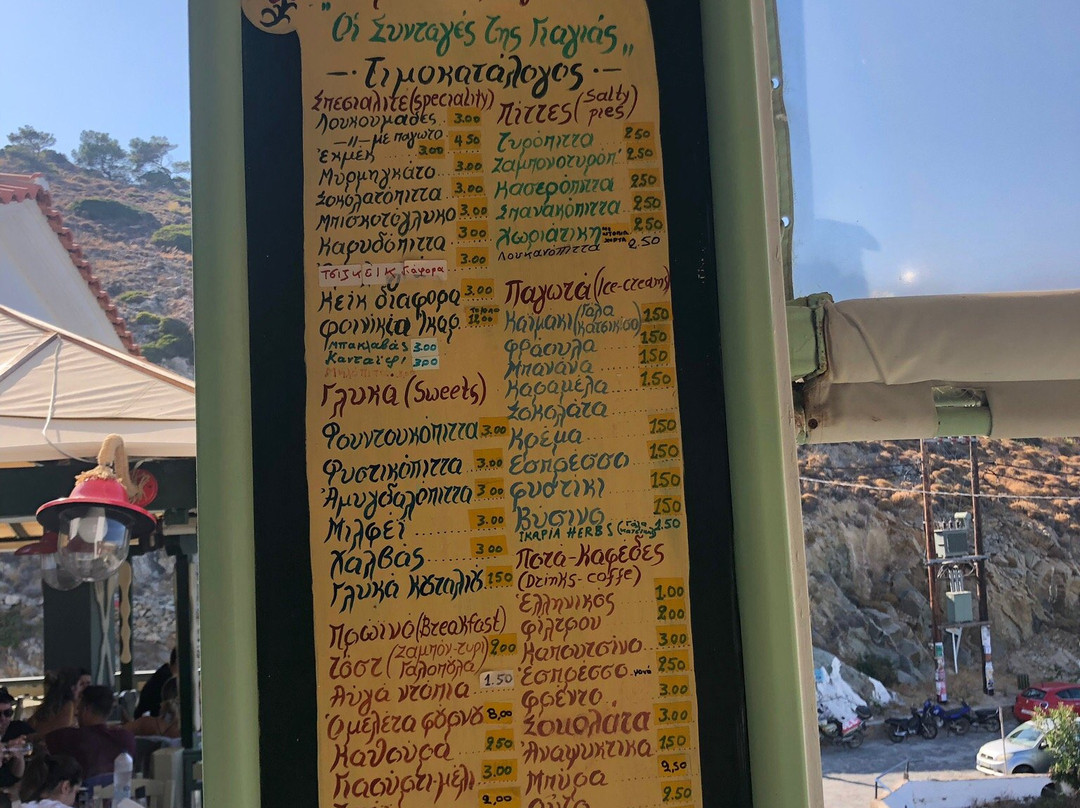 "Οἱ Συνταγές της Γιαγιάς"
Τιμοκατάλογος
Σπεσιαλιτέ (speciality)
Λουκουμάδες 3.00
—〃— με παγωτο 4.50
Ἐκμέκ 3.00
Μυρμηγκάτο 3.00
Σοκολατόπιττα 3.00
Μπισκοτόγλυκο 3.00
Καρυδόπιττα 3.00
3.00
ΤΣΙΖΚΕΙΚ Γιάφορα
Κεϊκ διάφορα 3.00
Φοινίκια Ἰκαρ. 12.00
Μπακλαβάς 3.00
Κανταΐφι 3.00
Γλυκά (Sweets)
Φουντουκόπιττα 3.00
Φυστικόπιττα 3.00
Ἀμυγδαλόπιττα 3.00
Μιλφέϊ 3.00
Χαλβάς 3.00
Γλυκά Κουταλιοῦ 1.50
Πρωϊνό (Breakfast)
Τόστ (Ζαμπόν-τυρί Γαλοπούλα) 2.00
Αὐγά ντόπια 1.50
Ὀμελέτα φούρνου 8.00
Καθούρα 2.50
Γιαούρτι-μέλι 3.00
2.00
Πίττες (Salty pies)
Τυρόπιττα 2.50
Ζαμπονοτυρόπ. 2.50
Κασερόπιττα 2.50
Σπανακόπιττα 2.50
Χωριάτικη ΜΕ ΝΤΟΠΙΑ ΧΟΡΤΑ 2.50
Λουκανόπιττα 2.50
Παγωτά (Ice-cream)
Καϊμάκι (Γάλα κατσικίσιο) 1.50
Φράουλα 1.50
Μπανάνα 1.50
Καραμέλα 1.50
Σοκολάτα
Κρέμα 1.50
Εσπρέσσο 1.50
Φυστίκι 1.50
Βύσινο 1.50
ΙΚΑΡΙΑ HERBS 1.50
Ποτά-Καφέδες
(Drinks-coffe)
Ἑλληνικός 1.00
Φίλτρου 2.00
Καπουτσίνο 3.00
Ἐσπρέσσο μονό 2.50
Φρέντο 3.00
Σοκολάτα 3.00
Ἀναψυκτικά 1.50
Μπύρα 2.50
Οὖζο 2.50